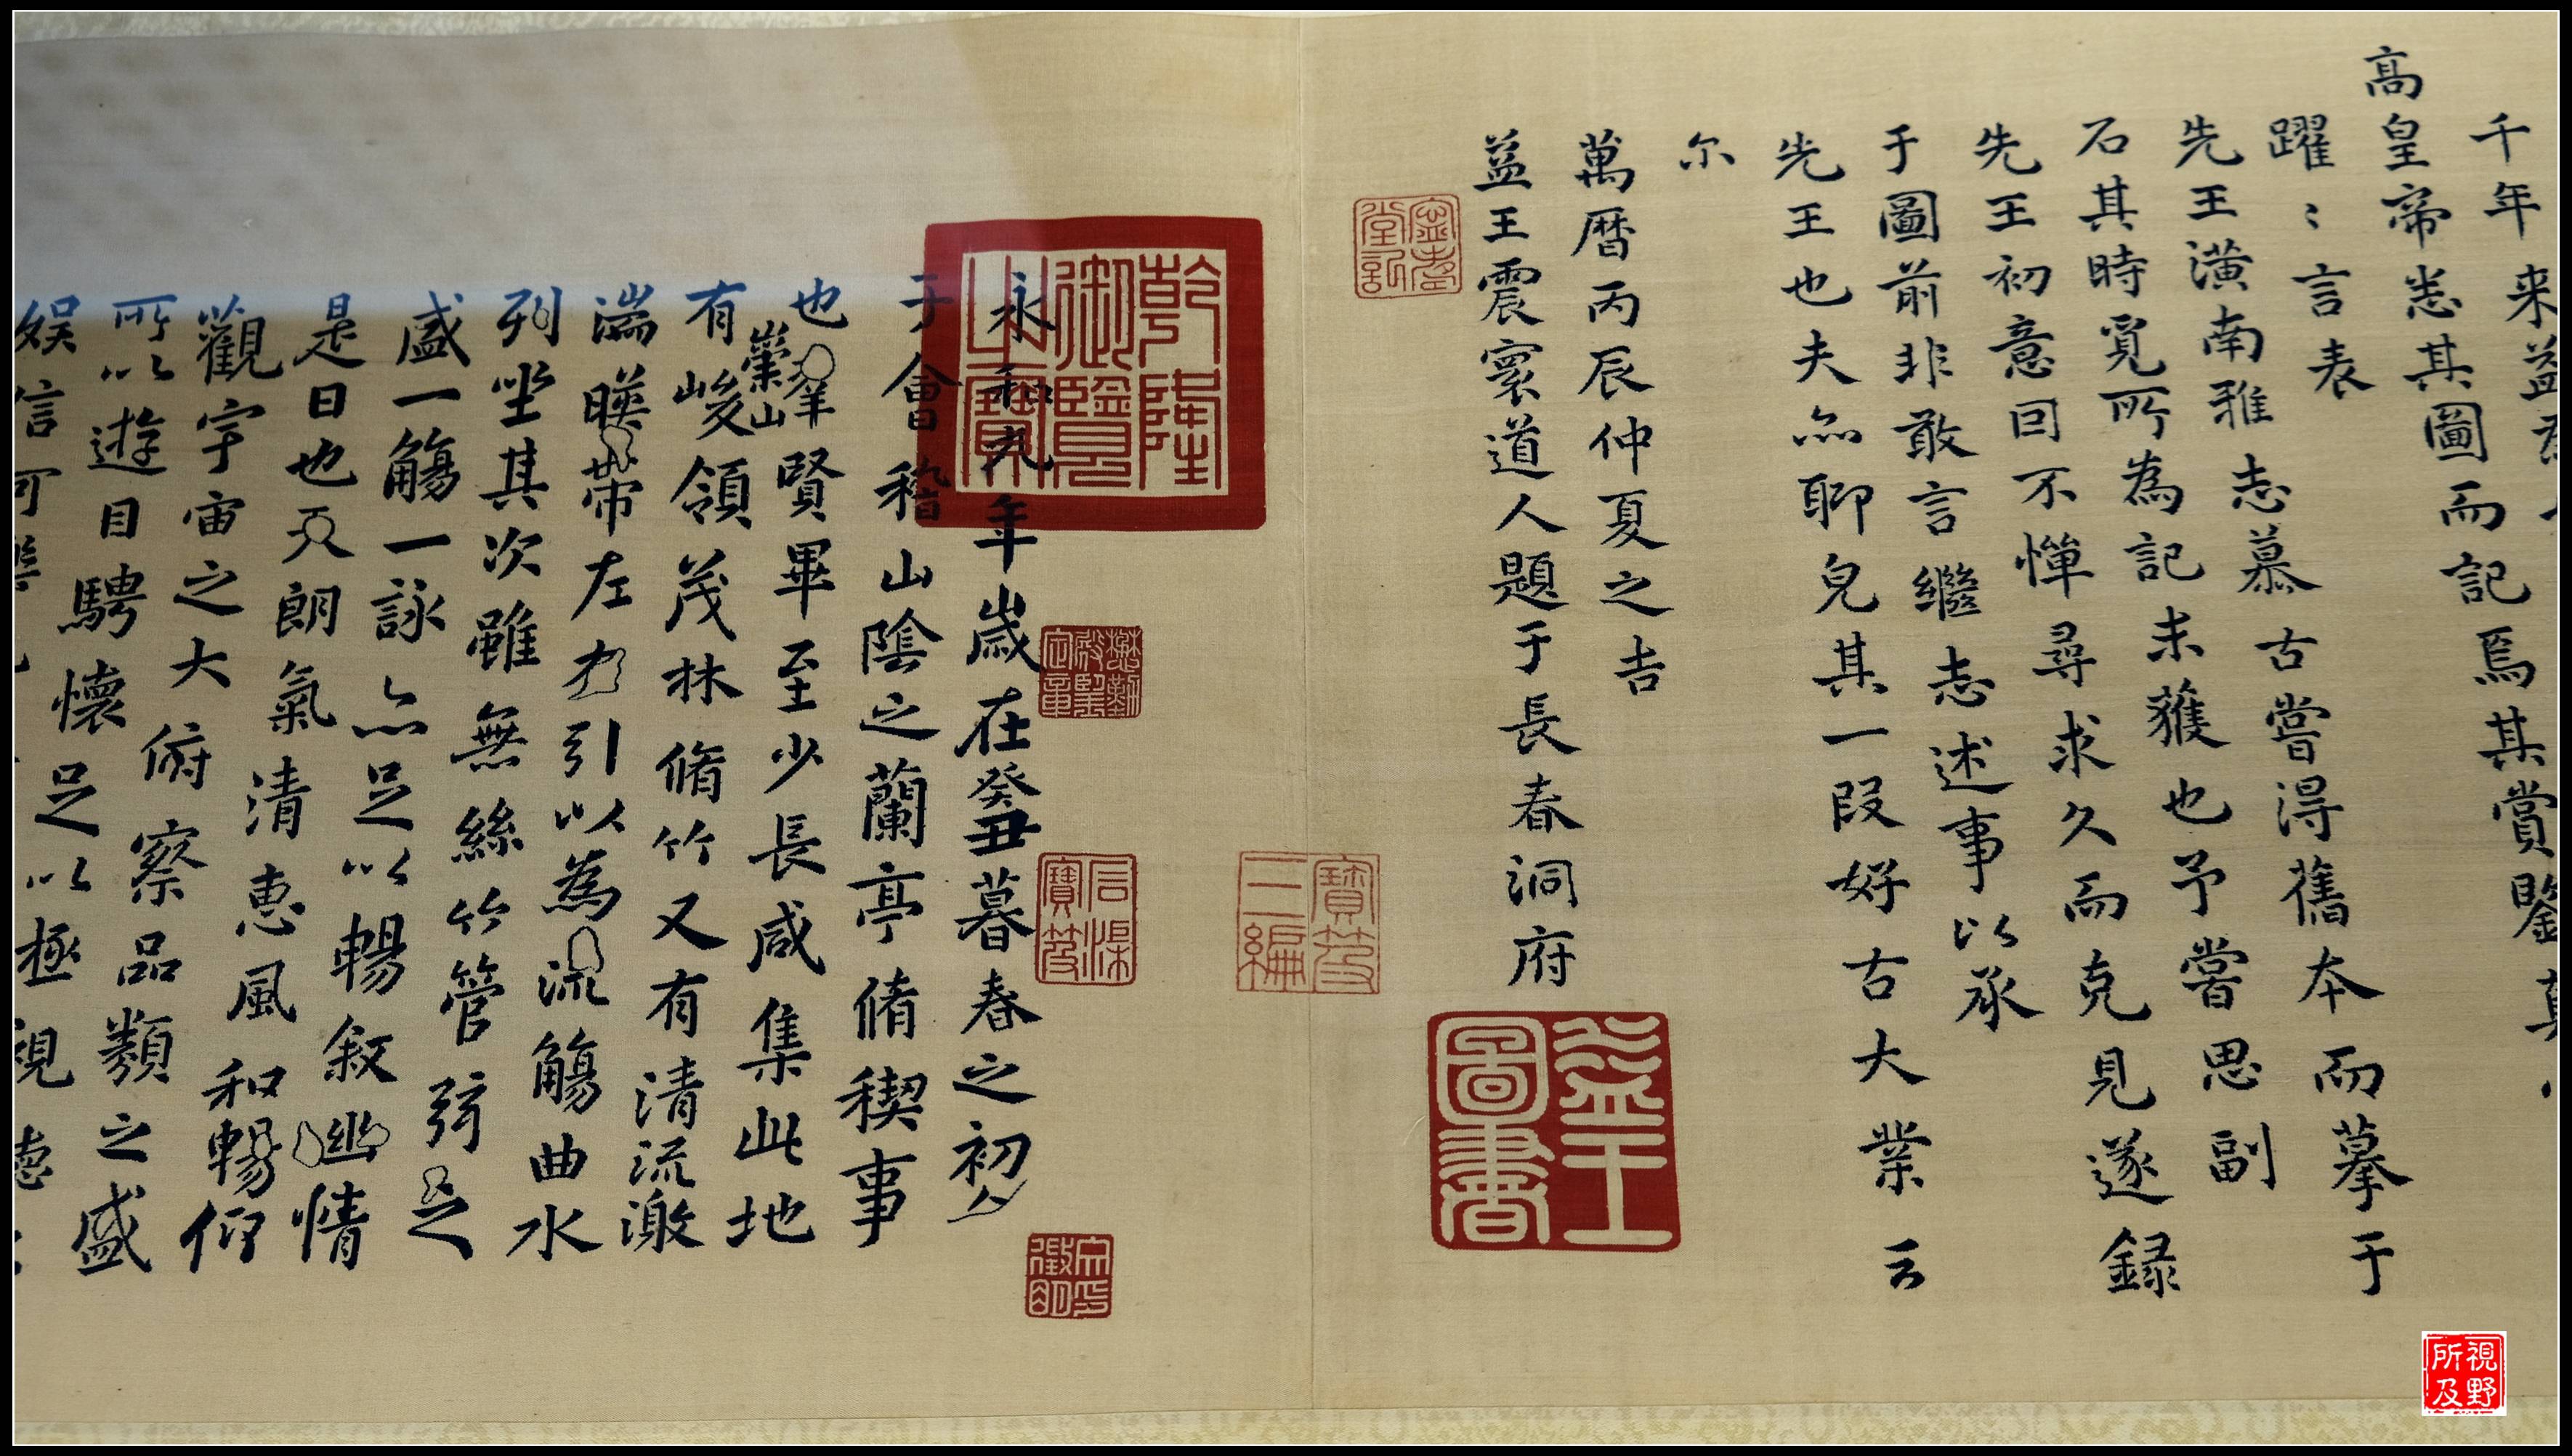 千年来益
高皇帝悉其圖而記焉其賞鑒真
躍〻言表
先王潢南雅志慕古嘗得舊本而摹于
石其時覓所為記未獲也予嘗思副
先王初意囙不憚尋求久而克見遂録
于圖前非敢言繼志述事以承
先王也夫亦聊見其一段好古大業云
尔
萬曆丙辰仲夏之吉
益王震寰道人題于長春洞府
益王圖書
寶笈三編
乾隆御覽之寶
石渠寶笈
永和九年歲在癸丑暮春之初
于會稽山陰之蘭亭脩稧事
也羣賢畢至少長咸集此地
有崇山峻領茂林脩竹又有清流激
湍暎帶左右引以為流觴曲水
列坐其次雖無絲竹管弦之
盛一觴一詠亦足以暢叙幽情
是日也天朗氣清惠風和暢仰
觀宇宙之大俯察品類之盛
所以遊目騁懷足以極視聽之
娱信可樂也
視野所及